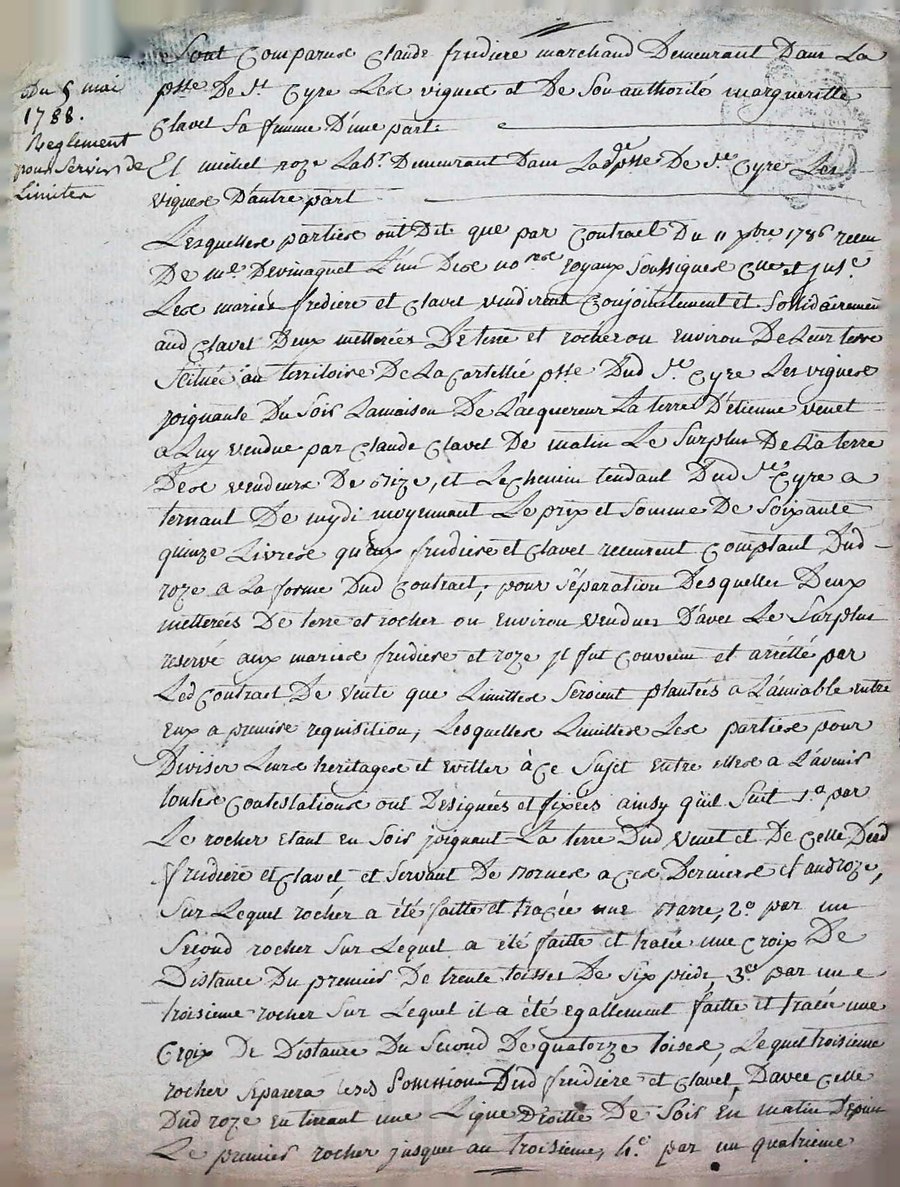 Du 5 mai
1788.
Reglement
pour Servir de
Limites
Sont Comparus Claude frediere marchand Demeurant Dans La
psse De St Cyre Les vignes et De Son authorité margueritte
Clavel Sa femme D'une part.
Et michel roze Labr. Demeurant Dans Lade psse De St Cyre Les
vignes D'autre part
Lesquelles parties ont Dit que par Contract Du 11 xbre 1786 receu
De me Devinaquet L'un Des nores royaux Soussignés et
Les mariés frediere et Clavel vendirent Conjointement et Sollidairement
aud Clavel Deux metterées De terre et rocher ou Environ De Leur terre
Scituée au territoire De La psse Dud St Cyre Les vignes
joignante Du Soir La maison De L'acquereur La terre D'etienne venet
a Luy vendue par Claude Clavel De matin Le Surplus De La terre
Des vendeurs De Bize, et Le chemin tendant Dud St Cyre a
ternant De mydi moyennant Le prix et Somme De Soixante
quinze Livres qu'eux frediere et Clavel receurent Comptant Dud
roze a La forme Dud Contract, pour Séparation Desquelles Deux
metterées De terre et rocher ou Environ vendues D'avec Le Surplus
reservé aux mariés frediere et roze jl fut Convenu et arrêtté par
Led Contract De vente que Limittes Seroient plantées a L'amiable entre
Eux a premiere requisition, Lesquelles Limittes Les parties pour
Diviser Leurs heritages et Eviter à Ce Sujet Entre elles a L'avenir
toutes Contestations ont Designées et fixées ainsy qu'il Suit 1º par
Le rocher Etant en Soir joignant La terre Dud Venet et De Celle Dud
frediere et Clavel, et Servant De Bornes a Ces Derniers et aud roze,
Sur Lequel rocher a été faitte et tracée une Barre, 2º par un
Second rocher Sur Lequel a été faitte et tracée une Croix De
Distance Du premier De trente toises De Six pieds, 3º par un
troisieme rocher Sur Lequel il a été egallement faitte et tracée une
Croix De Distance Du Second De quatorze toises, Lequel troisieme
rocher Separera Possession Dud frediere et Clavel D'avec Celle
Dud roze En tirant une Ligne Droitte De Soir En matin Depuis
Le premier rocher jusques au troisieme, 4º par un quatrieme